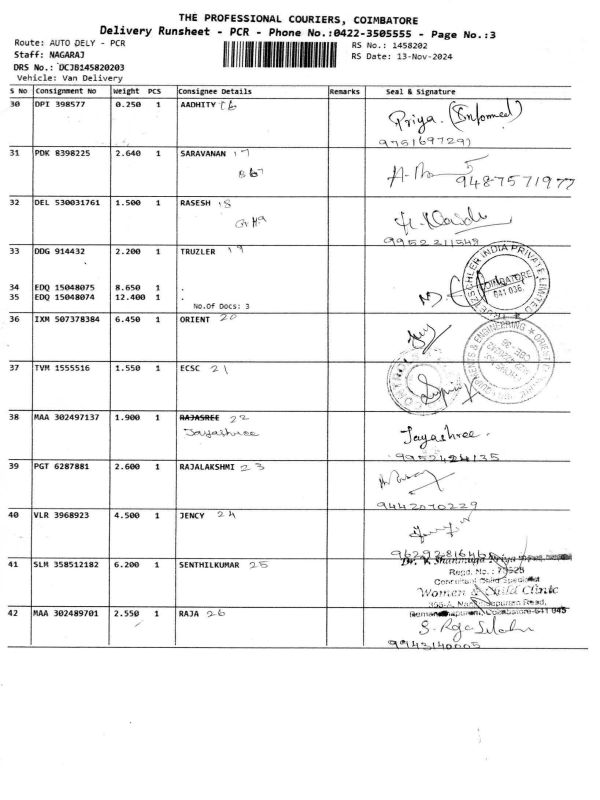 THE PROFESSIONAL COURIERS, COIMBATORE
Delivery Runsheet - PCR - Phone No.:0422-3505555 - Page No.:3
Route: AUTO DELY - PCR RS No.: 1458202
Staff: NAGARAJ RS Date: 13-Nov-2024
DRS No.: DCJB145820203
Vehicle: Van Delivery
S No Consignment No Weight PCS Consignee Details Remarks Seal & Signature
30 DPI 398577 0.250 1 AADHITY Priya. (Informed)
9751697291
31 PDK 8398225 2.640 1 SARAVANAN 17
B 67 9487571977
32 DEL 530031761 1.500 1 RASESH 18
9952211548
33 DDG 914432 2.200 1 TRUZLER 19
INDIA PRIVATE LIMITED
COIMBATORE
641 036.
34 EDQ 15048075 8.650 1 .
35 EDQ 15048074 12.400 1 .
No.Of Docs: 3
36 IXM 507378384 6.450 1 ORIENT 20
& ENGINEERING
37 TVM 1555516 1.550 1 ECSC 21
38 MAA 302497137 1.900 1 RAJASREE 22
Jayashree Jayashree.
9952424135
39 PGT 6287881 2.600 1 RAJALAKSHMI 23
9442070229
40 VLR 3968923 4.500 1 JENCY 24
41 SLM 358512182 6.200 1 SENTHILKUMAR 25
Dr. V. Shanmuga Priya
Regd. No.: 77523
Consultant Child Specialist
Women & Child Clinic
Coimbatore-641 045
42 MAA 302489701 2.550 1 RAJA 26
9943140005